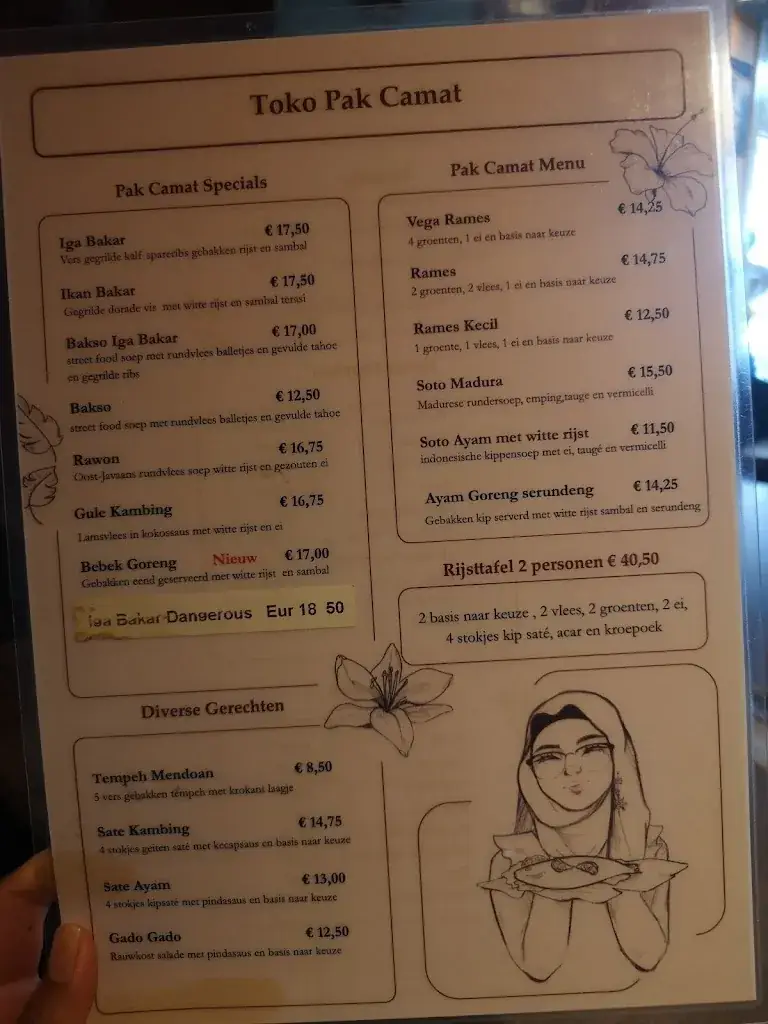 Toko Pak Camat
Pak Camat Specials
Iga Bakar € 17,50
Vers gegrilde kalf spareribs gebakken rijst en sambal
Ikan Bakar € 17,50
Gegrilde dorade vis met witte rijst en sambal terasi
Bakso Iga Bakar € 17,00
street food soep met rundvlees balletjes en gevulde tahoe
en gegrilde ribs
Bakso € 12,50
street food soep met rundvlees balletjes en gevulde tahoe
Rawon € 16,75
Oost-Javaans rundvlees soep witte rijst en gezouten ei
Gule Kambing € 16,75
Lamsvlees in kokossaus met witte rijst en ei
Bebek Goreng Nieuw € 17,00
Gebakken eend geserveerd met witte rijst en sambal
Iga Bakar Dangerous Eur 18 50
Diverse Gerechten
Tempeh Mendoan € 8,50
5 vers gebakken tempeh met krokans laagje
Sate Kambing € 14,75
4 stokjes geiten saté met kecapsaus en basis naar keuze
Sate Ayam € 13,00
4 stokjes kipsaté met pindasaus en basis naar keuze
Gado Gado € 12,50
Rauwkost salade met pindasaus en basis naar keuze
Pak Camat Menu
Vega Rames € 14,25
4 groenten, 1 ei en basis naar keuze
Rames € 14,75
2 groenten, 2 vlees, 1 ei en basis naar keuze
Rames Kecil € 12,50
1 groente, 1 vlees, 1 ei en basis naar keuze
Soto Madura € 15,50
Madurese rundersoep, emping,tauge en vermicelli
Soto Ayam met witte rijst € 11,50
indonesische kippensoep met ei, taugé en vermicelli
Ayam Goreng serundeng € 14,25
Gebakken kip serverd met witte rijst sambal en serundeng
Rijsttafel 2 personen € 40,50
2 basis naar keuze , 2 vlees, 2 groenten, 2 ei,
4 stokjes kip saté, acar en kroepoek